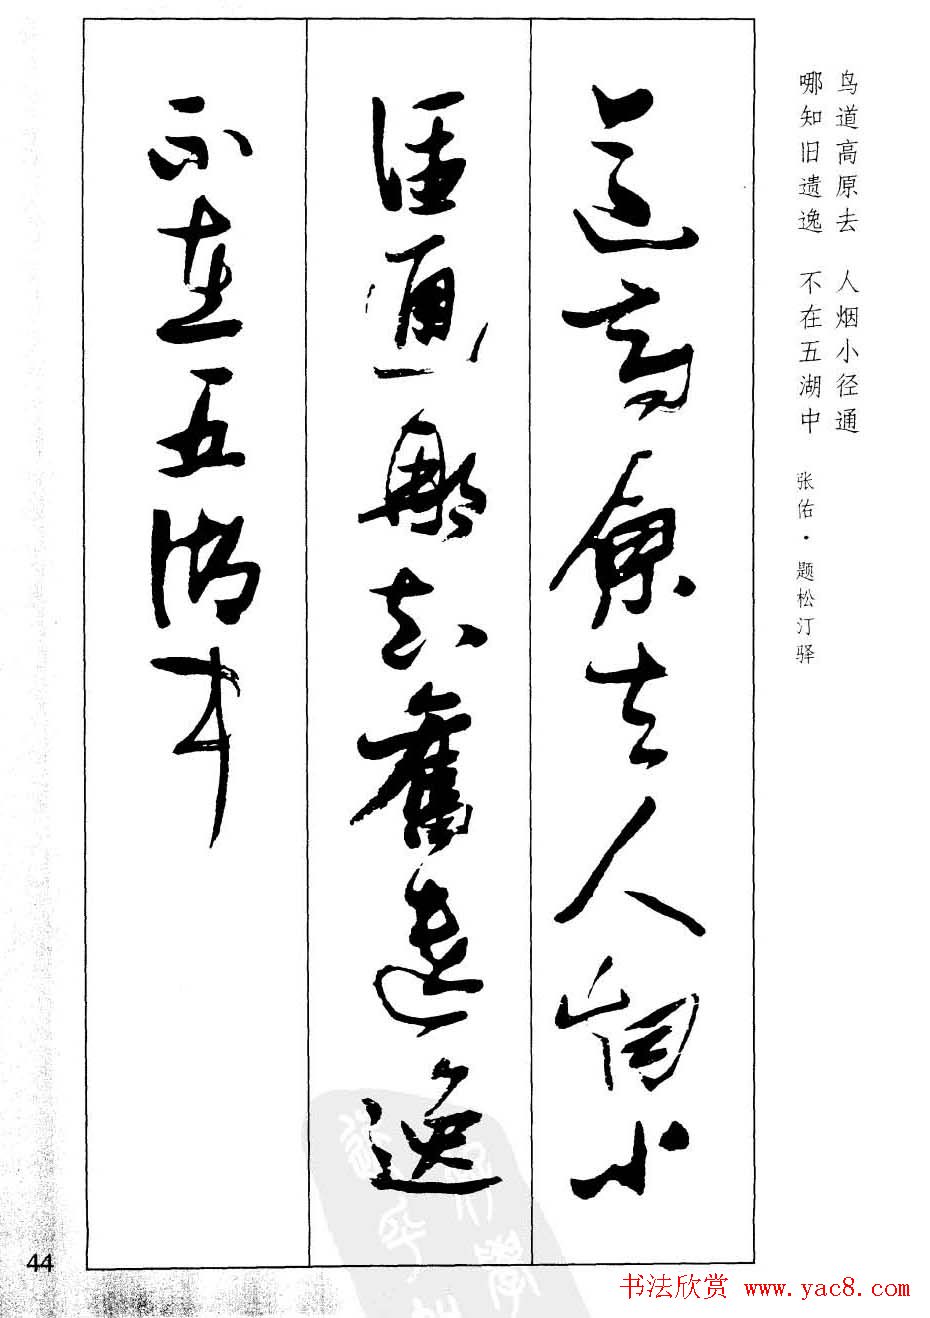 鸟道高原去 人烟小径通
哪知旧遗逸 不在五湖中 张佑·题松汀驿
道高原去人烟小
径通那知舊遺逸
不在五湖中
44
书法欣赏 www.yac8.com